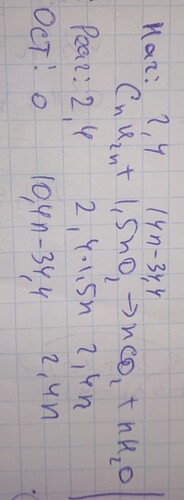 Нач: 2,4 14n-34,4
CnH2n + 1,5nO2 → nCO2 + nH2O
Реаг: 2,4 2,4·1,5n 2,4n
Ост: 0 10,4n-34,4 2,4n